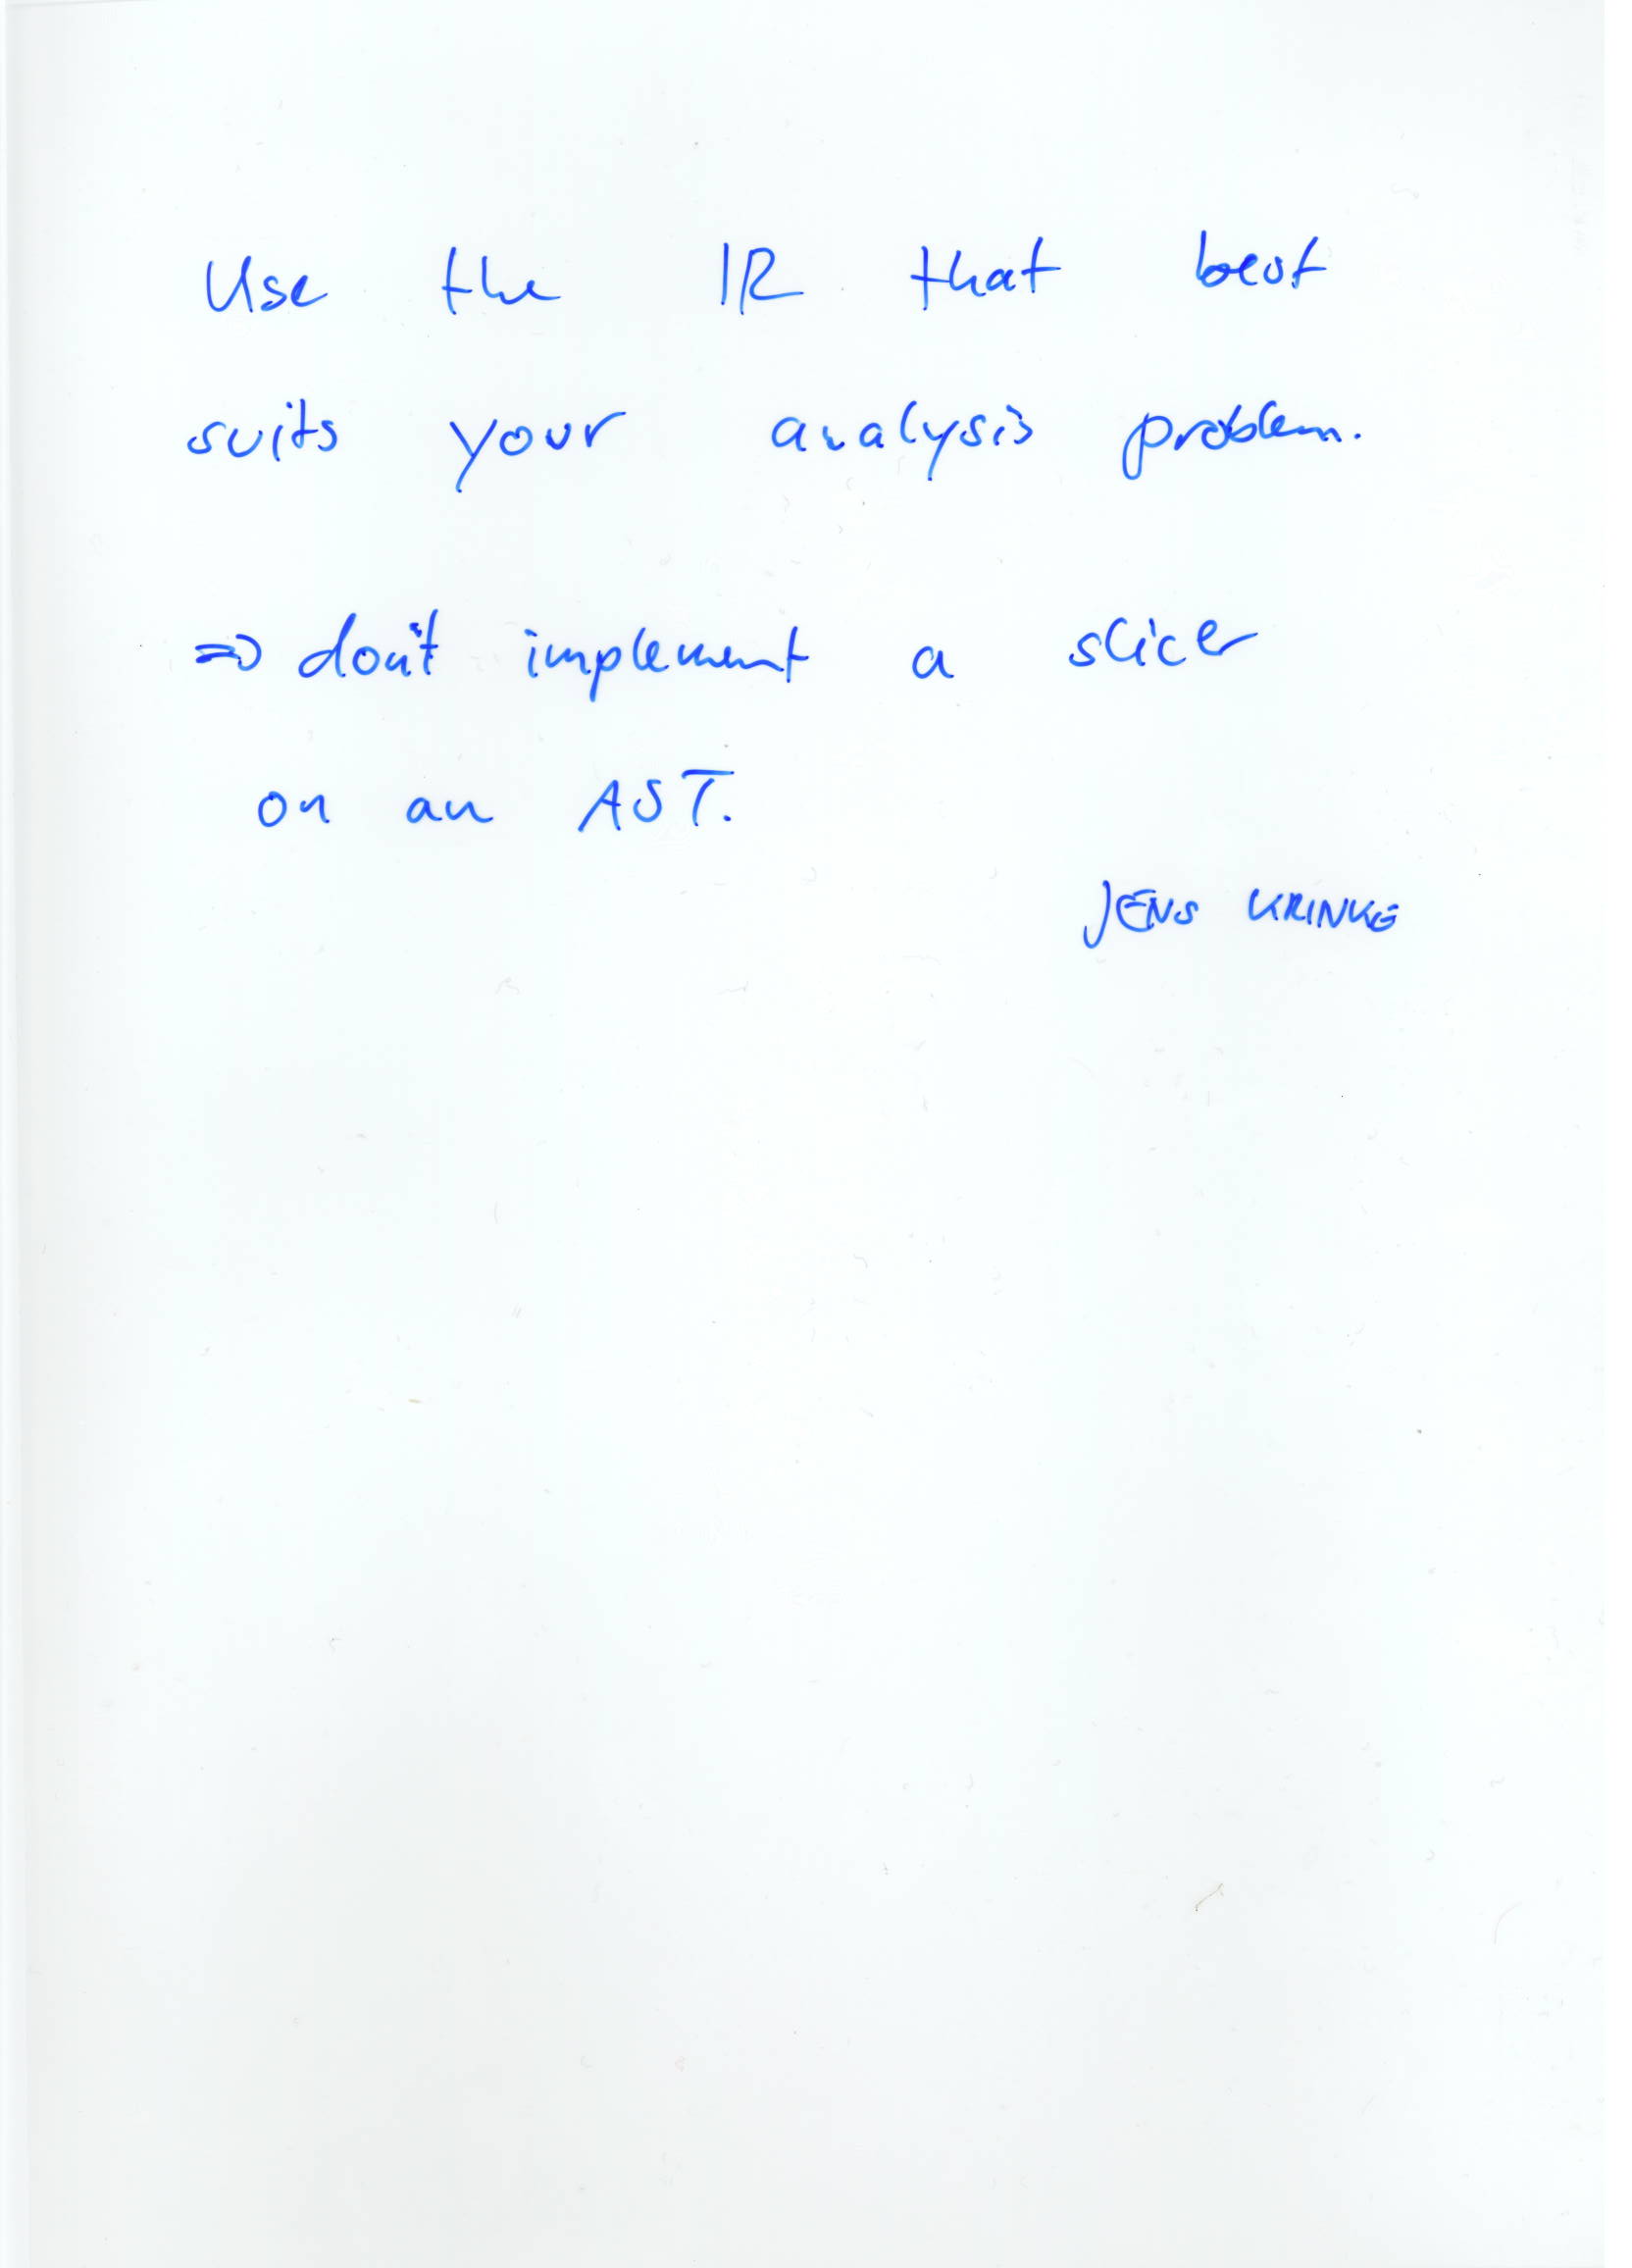 Use the IR that best
suits your analysis problem.
⇒ don't implement a slicer
on an AST.
JENS KRINKE